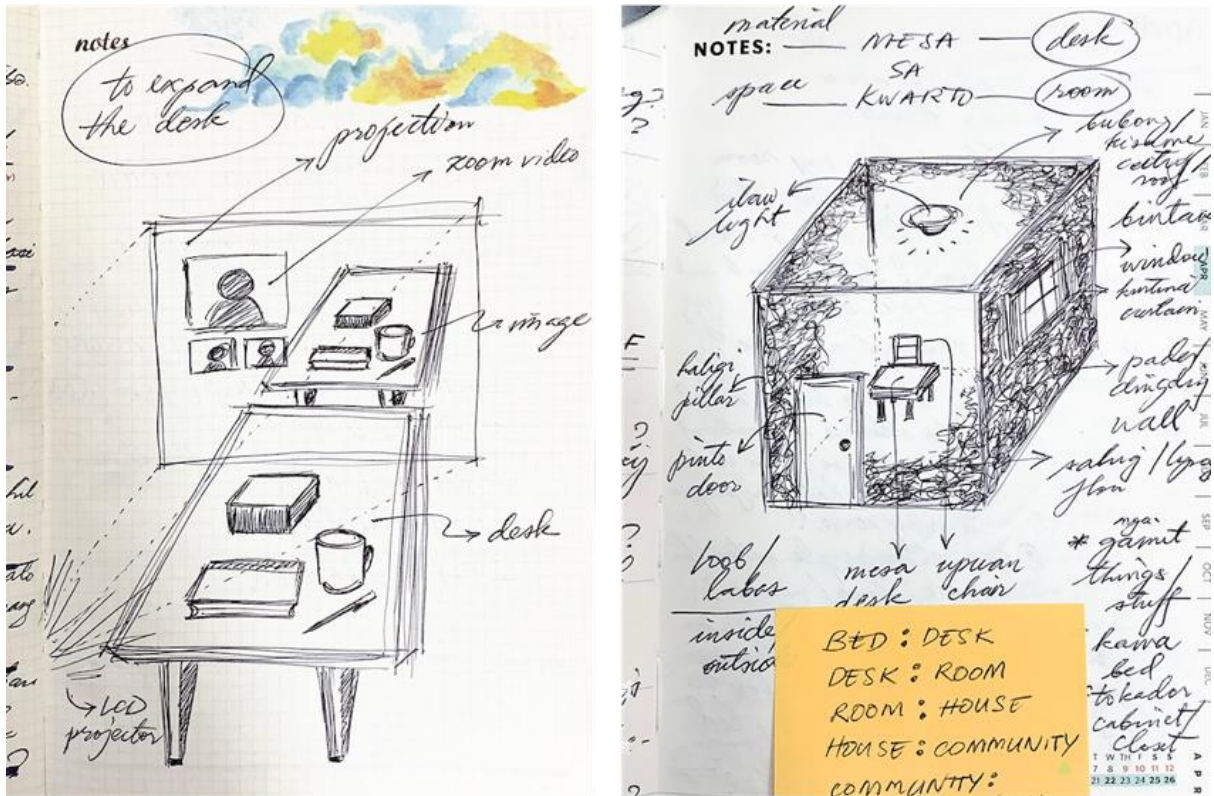 notes
to expand
the desk
projection
zoom video
image
desk
LCD
projector
material
NOTES: — MESA — desk
SA
space — KWARTO — room
bubong/
kisame
ceiling/
roof
ilaw
light
bintana
window
kurtina
curtain
haligi
pillar
pader
dingding
wall
pinto
door
sahig/
floor
loob/
labas
inside/
outside
mesa
desk
upuan
chair
mga
* gamit
things/
stuff
kama
bed
tokador
cabinet/
closet
BED : DESK
DESK : ROOM
ROOM : HOUSE
HOUSE : COMMUNITY
COMMUNITY :
JAN
FEB
APR
MAY
JUL
SEP
OCT
NOV
DEC
T W TH F S S
7 8 9 10 11 12
21 22 23 24 25 26
APR